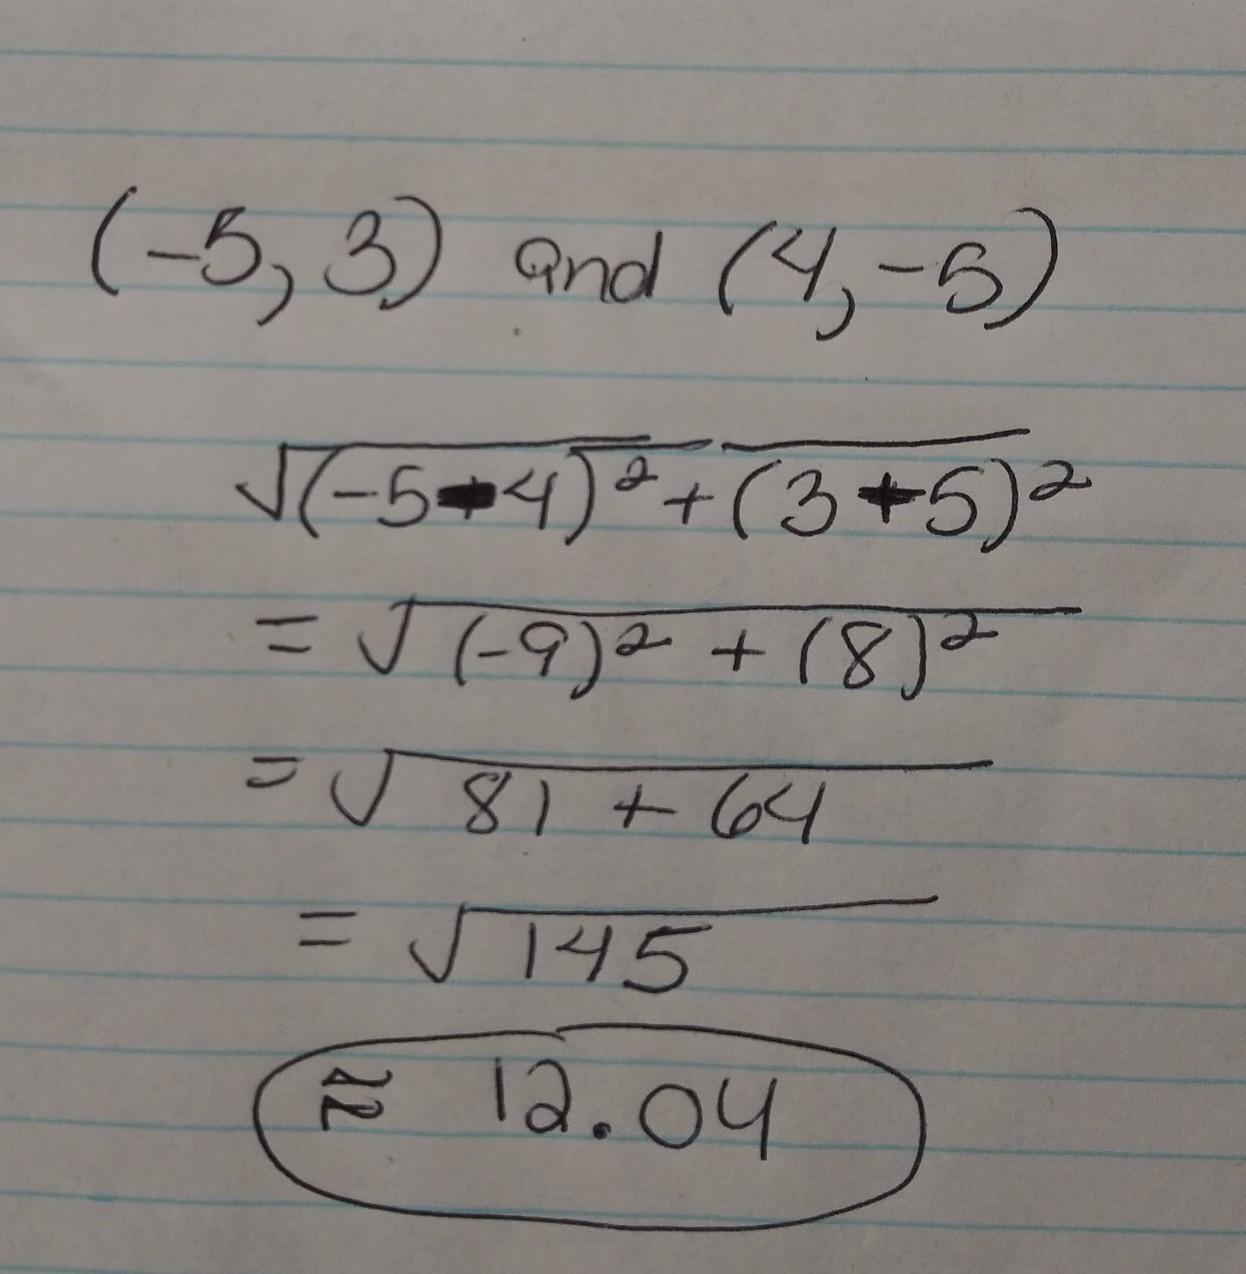 (-5, 3) and (4, -5)
√(-5-4)² + (3+5)²
= √(-9)² + (8)²
= √81 + 64
= √145
≈ 12.04